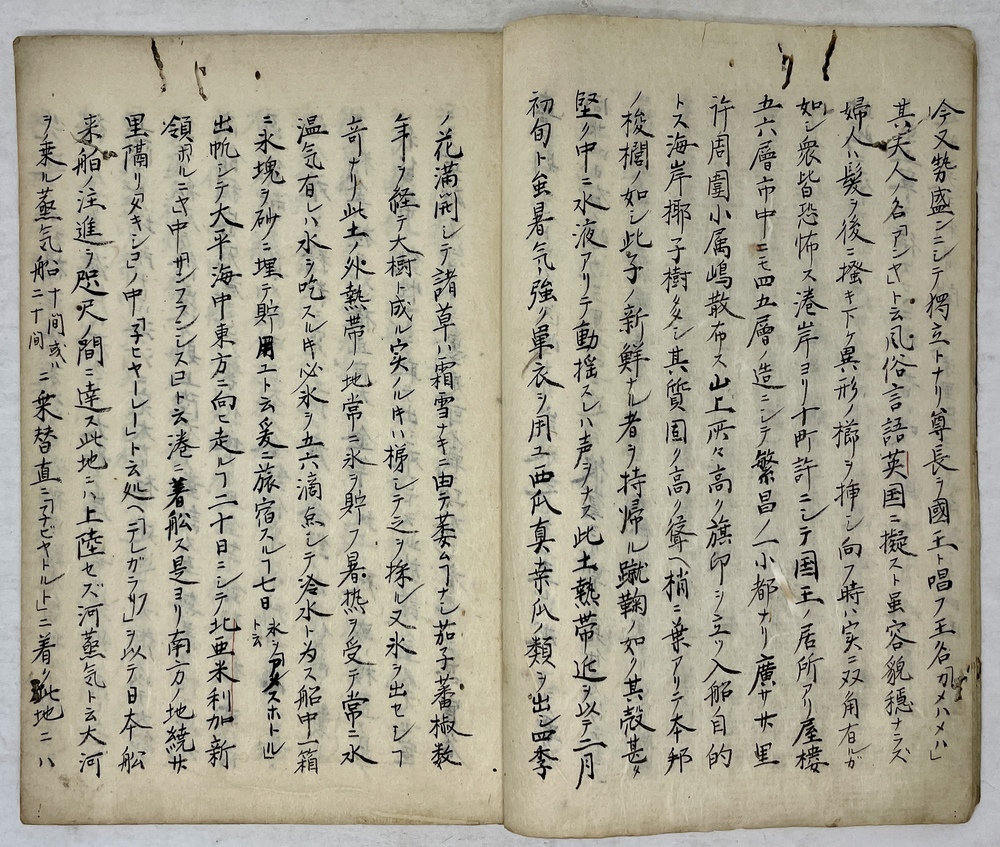 今又勢盛ンニシテ獨立トナリ尊長ヲ國王ト唱フ王名カメハメハ」
其夫人ノ名「アンヤ」ト云風俗言語英国ニ擬スト虽容貌穏ナラズ
婦人ハ髪ヲ後ニ掻キ下ケ異形ノ櫛ヲ挿シ向フ時ハ実ニ双角有ルガ
如シ衆皆恐怖ス港岸ヨリ十町許ニシテ国王ノ居所アリ屋樓
五六層市中ニモ四五層ノ造ニシテ繁昌ノ一小都ナリ廣サ廿里
許周圍小属嶋散布ス山上所々高ク旗印ヲ立ツ入船目的
トス海岸椰子樹多シ其質固ク高ク聳ヘ梢ニ葉アリテ本邦
ノ梭櫚ノ如シ此子ノ新鮮ナル者ヲ持帰ル蹴鞠ノ如ク其殻甚タ
堅ク中ニ水液アリテ動揺スレハ声ヲナス此土熱帯近ヲ以テ二月
初旬ト虽暑気強ク単衣ヲ用ユ西瓜真桒瓜ノ類ヲ出シ四季
ノ花満開シテ諸草ハ霜雪ナキニ由テ萎ムヿナシ茄子蕃椒数
年ヲ経テ大樹ト成ル実ノル片ハ梯シテ之ヲ採ル又氷ヲ出セシヿ
奇ナリ此土ノ外熱帯ノ地常ニ氷ヲ貯フ暑热ヲ受テ常ニ水
温気有レハ水ヲ吃スル片必氷ヲ五六滴点シテ冷水ト為ス船中一箱
ニ氷塊ヲ砂ニ埋テ貯用ユト云爰ニ旅宿スルヿ七日
出帆シテ大平海中東方ニ向テ走ルヿ二十日ニシテ北亜米利加新
領「ホルニヤ」中「サンフランシスコ」ト云港ニ着船ス是ヨリ南方ノ地続廿
里隔リ「メキシコ」ノ中「子ヒヤーレー」ト云処ヘ「テレガラフ」ヲ以テ日本舩
来舶ノ注進ヲ咫尺ノ間ニ達ス此地ニハ上陸セズ河蒸気ト云大河
ヲ乗ル蒸気船十間或ハ二十間ニ乗替直ニ「子ビヤトルト」ニ着ク此地ニハ